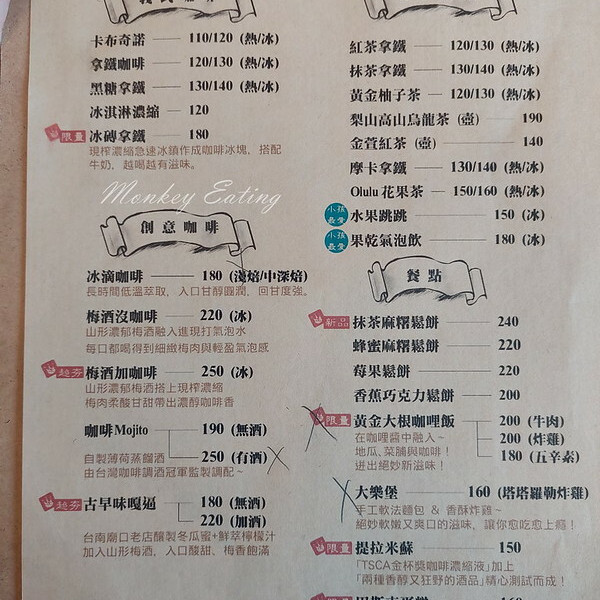 卡布奇諾 110/120 (熱/冰)
拿鐵咖啡 120/130 (熱/冰)
黑糖拿鐵 130/140 (熱/冰)
冰淇淋濃縮 120
限量 冰磚拿鐵 180
現榨濃縮急速冰鎮作成咖啡冰塊，搭配
牛奶，越喝越有滋味。
Monkey Eating
創意咖啡
冰滴咖啡 180 (淺焙/中深焙)
長時間低溫萃取，入口甘醇圓潤，回甘度強。
梅酒沒咖啡 220 (冰)
山形濃郁梅酒融入進現打氣泡水
每口都喝得到細緻梅肉與輕盈氣泡感
超夯 梅酒加咖啡 250 (冰)
山形濃郁梅酒搭上現榨濃縮
梅肉柔酸甘甜帶出濃醇咖啡香
咖啡Mojito 190 (無酒)
250 (有酒)
自製薄荷蒸餾酒
由台灣咖啡調酒冠軍監製調配~
超夯 古早味嘎逼 180 (無酒)
220 (加酒)
台南廟口老店釀製冬瓜蜜+鮮萃檸檬汁
加入山形梅酒，入口酸甜、梅香飽滿
紅茶拿鐵 120/130 (熱/冰)
抹茶拿鐵 130/140 (熱/冰)
黃金柚子茶 120/130 (熱/冰)
梨山高山烏龍茶 (壺) 190
金萱紅茶 (壺) 140
摩卡拿鐵 130/140 (熱/冰)
Olulu 花果茶 150/160 (熱/冰)
小孩最愛 水果跳跳 150 (冰)
小孩最愛 果乾氣泡飲 180 (冰)
餐點
新品 抹茶麻糬鬆餅 240
蜂蜜麻糬鬆餅 220
莓果鬆餅 220
香蕉巧克力鬆餅 200
限量 黃金大根咖哩飯 200 (牛肉)
200 (炸雞)
180 (五辛素)
在咖哩醬中融入~
地瓜、菜脯與咖啡！
迸出絕妙新滋味！
大樂堡 160 (塔塔羅勒炸雞)
手工軟法麵包 & 香酥炸雞~
絕妙軟嫩又爽口的滋味，讓你愈吃愈上癮！
限量 提拉米蘇 150
「TSCA金杯獎咖啡濃縮液」加上
「兩種香醇又狂野的酒品」精心測試而成！